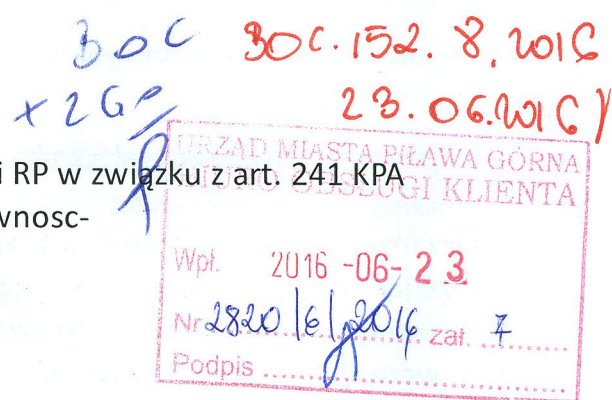 BOC BOC.152.8.2016
+ZGP 23.06.2016
i RP w związku z art. 241 KPA
wnosc-
URZĄD MIASTA PIŁAWA GÓRNA
BIURO OBSŁUGI KLIENTA
Wpł. 2016 -06- 23
Nr 2820/6/2016 zał. 7
Podpis